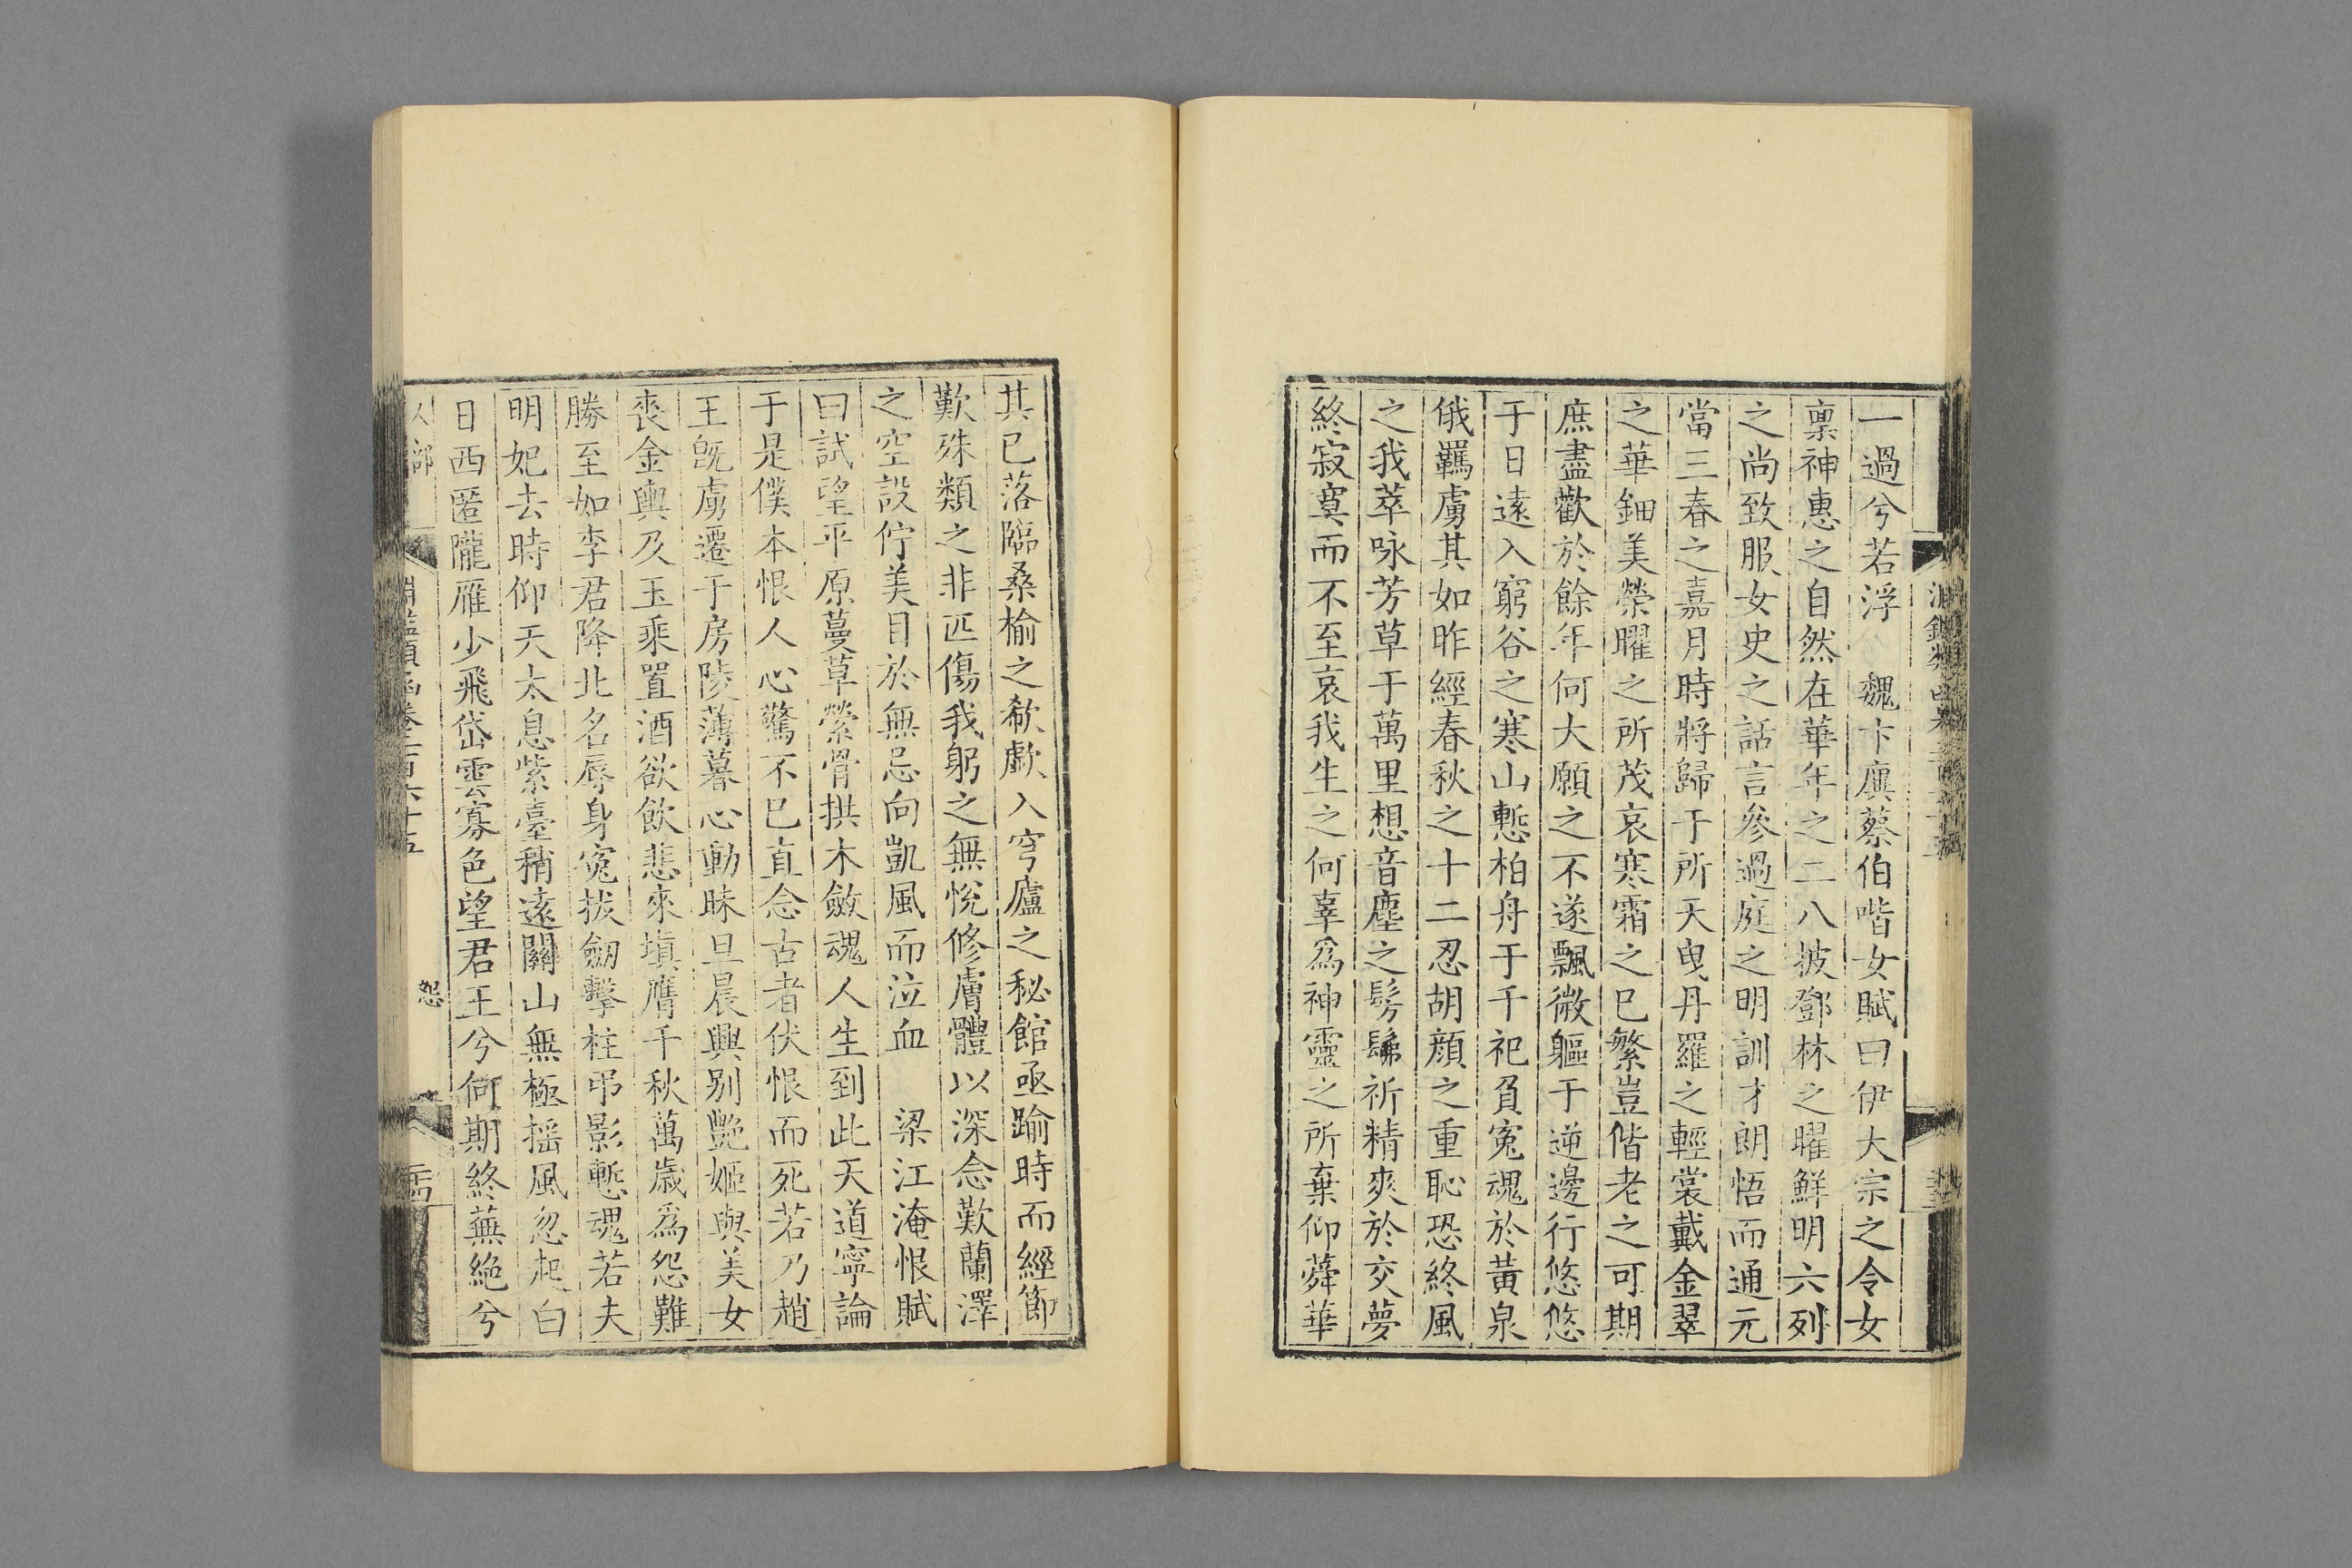 一過兮若浮　魏卞廙蔡伯喈女賦曰伊大宗之令女
禀神惠之自然在華年之二八披鄧林之曜鮮明六列
之尚致服女史之話言參過庭之明訓才朗悟而通元
當三春之嘉月時將歸于所天曳丹羅之輕裳戴金翠
之華鈿美榮曜之所茂哀寒霜之巳繁豈偕老之可期
庶盡歡於餘年何大願之不遂飄微軀于逆邊行悠悠
于日遠入窮谷之寒山慙柏舟于千祀負寃魂於黃泉
俄羈虜其如昨經春秋之十二忍胡顏之重恥恐終風
之我萃咏芳草于萬里想音塵之髣髴祈精爽於交夢
終寂寞而不至哀我生之何辜爲神靈之所棄仰蕣華
其巳落臨桑榆之歔欷入穹廬之秘館亟踰時而經節
歎殊類之非匹傷我躬之無悅修膚體以深念歎蘭澤
之空設佇美目於無忌向凱風而泣血　梁江淹恨賦
曰試望平原蔓草縈骨拱木斂魂人生到此天道寧論
于是僕本恨人心驚不巳直念古者伏恨而死若乃趙
王旣虜遷于房陵薄暮心動昧旦晨興别艷姬與美女
喪金輿及玉乘置酒欲飲悲來塡膺千秋萬歲爲怨難
勝至如李君降北名辱身寃拔劒擊柱弔影慙魂若夫
明妃去時仰天太息紫臺稍遠關山無極摇風忽起白
日西匿隴雁少飛岱雲寡色望君王兮何期終蕪絶兮
人部
淵鑑類函卷三百六十五
怨